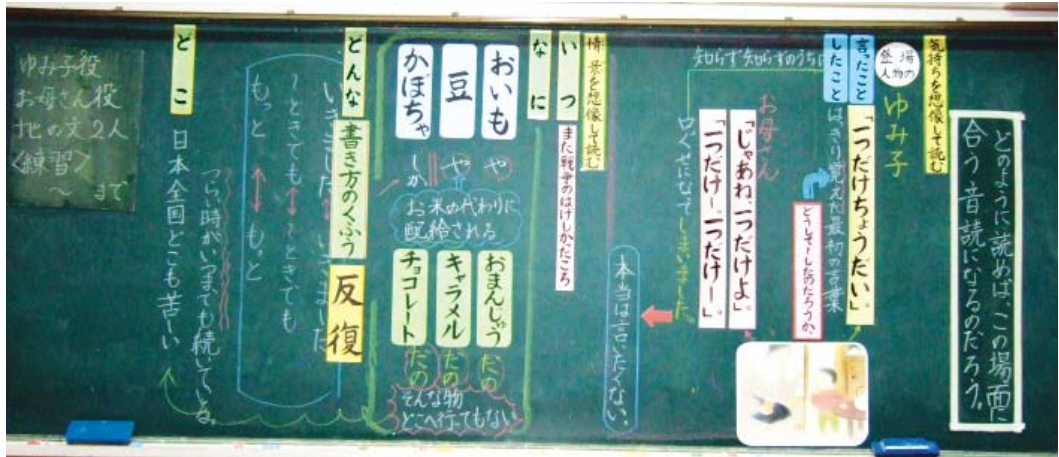 どのように読めば、この場面に
合う音読になるのだろう。
気持ちを想像して読む
登場
人物の
ゆみ子
言ったこと
したこと
「一つだけちょうだい。」
はっきり覚えた最初の言葉
どうして〜したのだろうか。
知らず知らずのうちに
お母さん
「じゃあね、一つだけよ。」
「一つだけー。一つだけー。」
口ぐせになってしまいました。
本当は言いたくない。
情景を想像して読む
いつ
まだ戦争のはげしかったころ
なに
おいも
や
豆
や
かぼちゃ
しか
お米の代わりに
配給される
おまんじゅう
だの
キャラメル
だの
チョコレート
だの
そんな物
どこへ行ってもない
どんな
書き方のくふう
反復
〜ときても〜ときても
もっと
もっと
つらい時がいつまでも続いている。
どこ
日本全国どこも苦しい
ゆみ子役
お母さん役
地の文2人
<練習>
〜まで